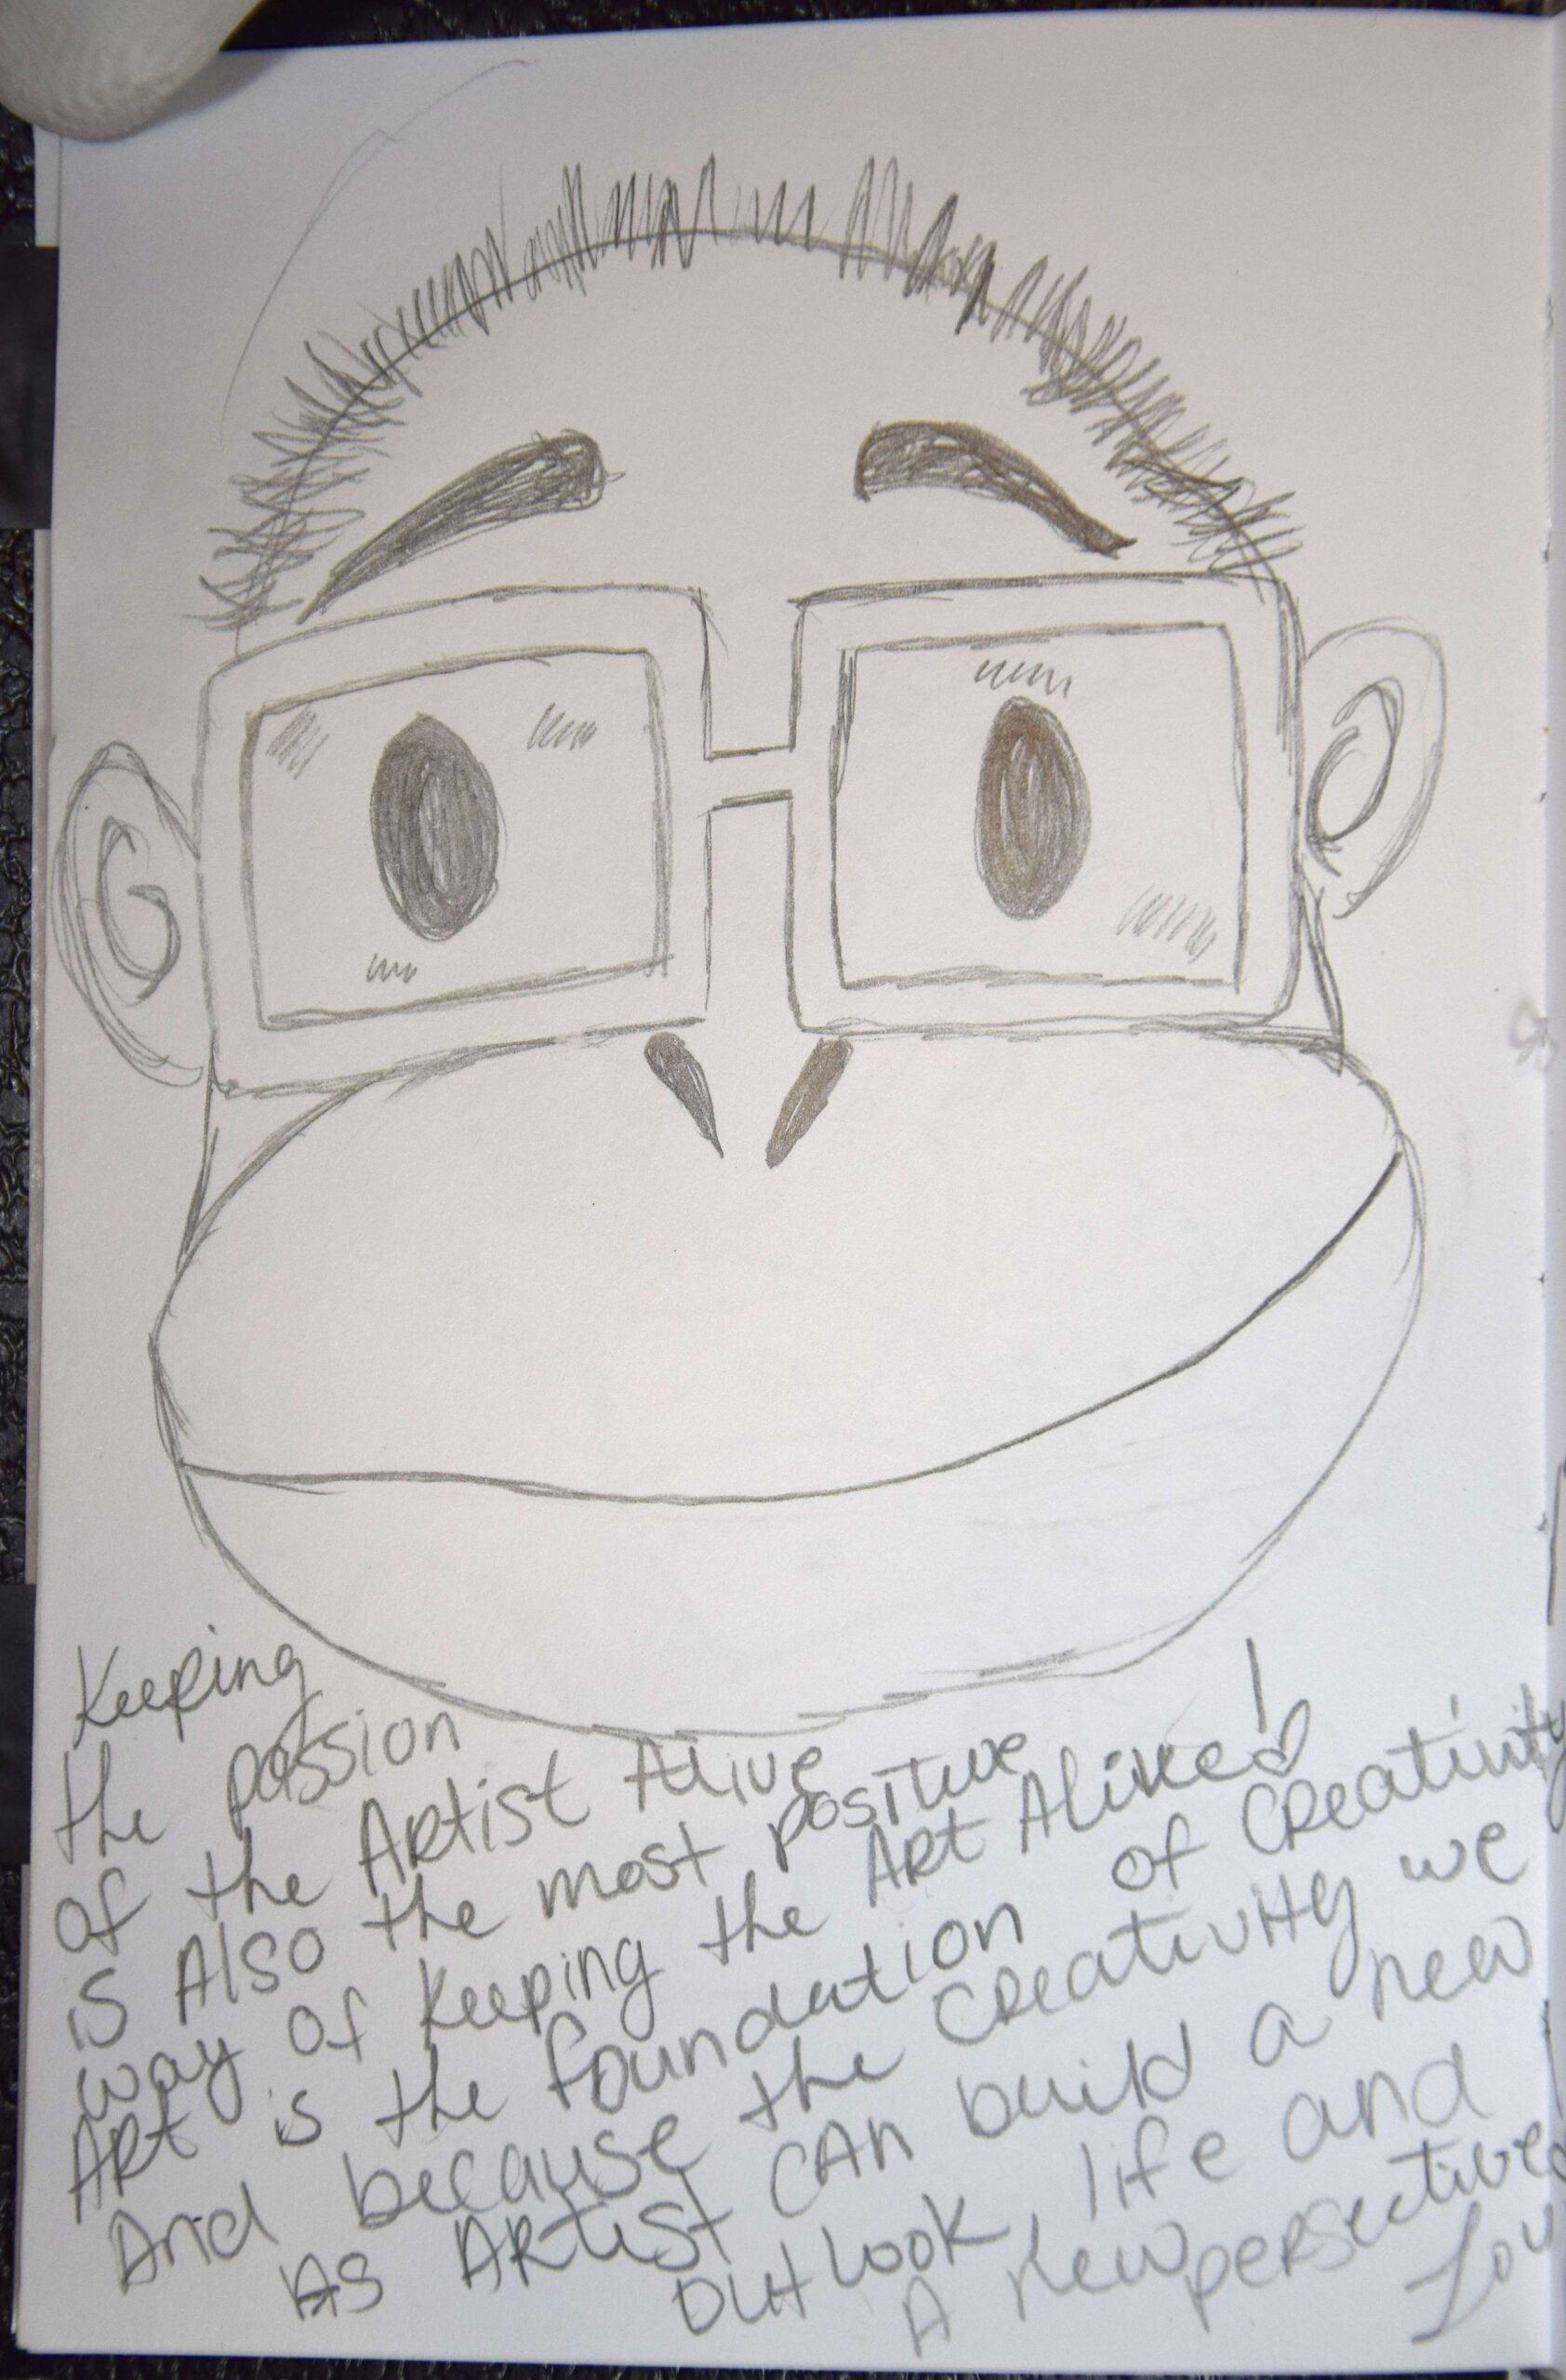 Keeping
the passion
of the Artist Alive
is Also the most positive
way of keeping the Art Alive!
Art is the foundation of creativity
And because the creativity we
As Artist can build a new
outlook, life and
A new persective